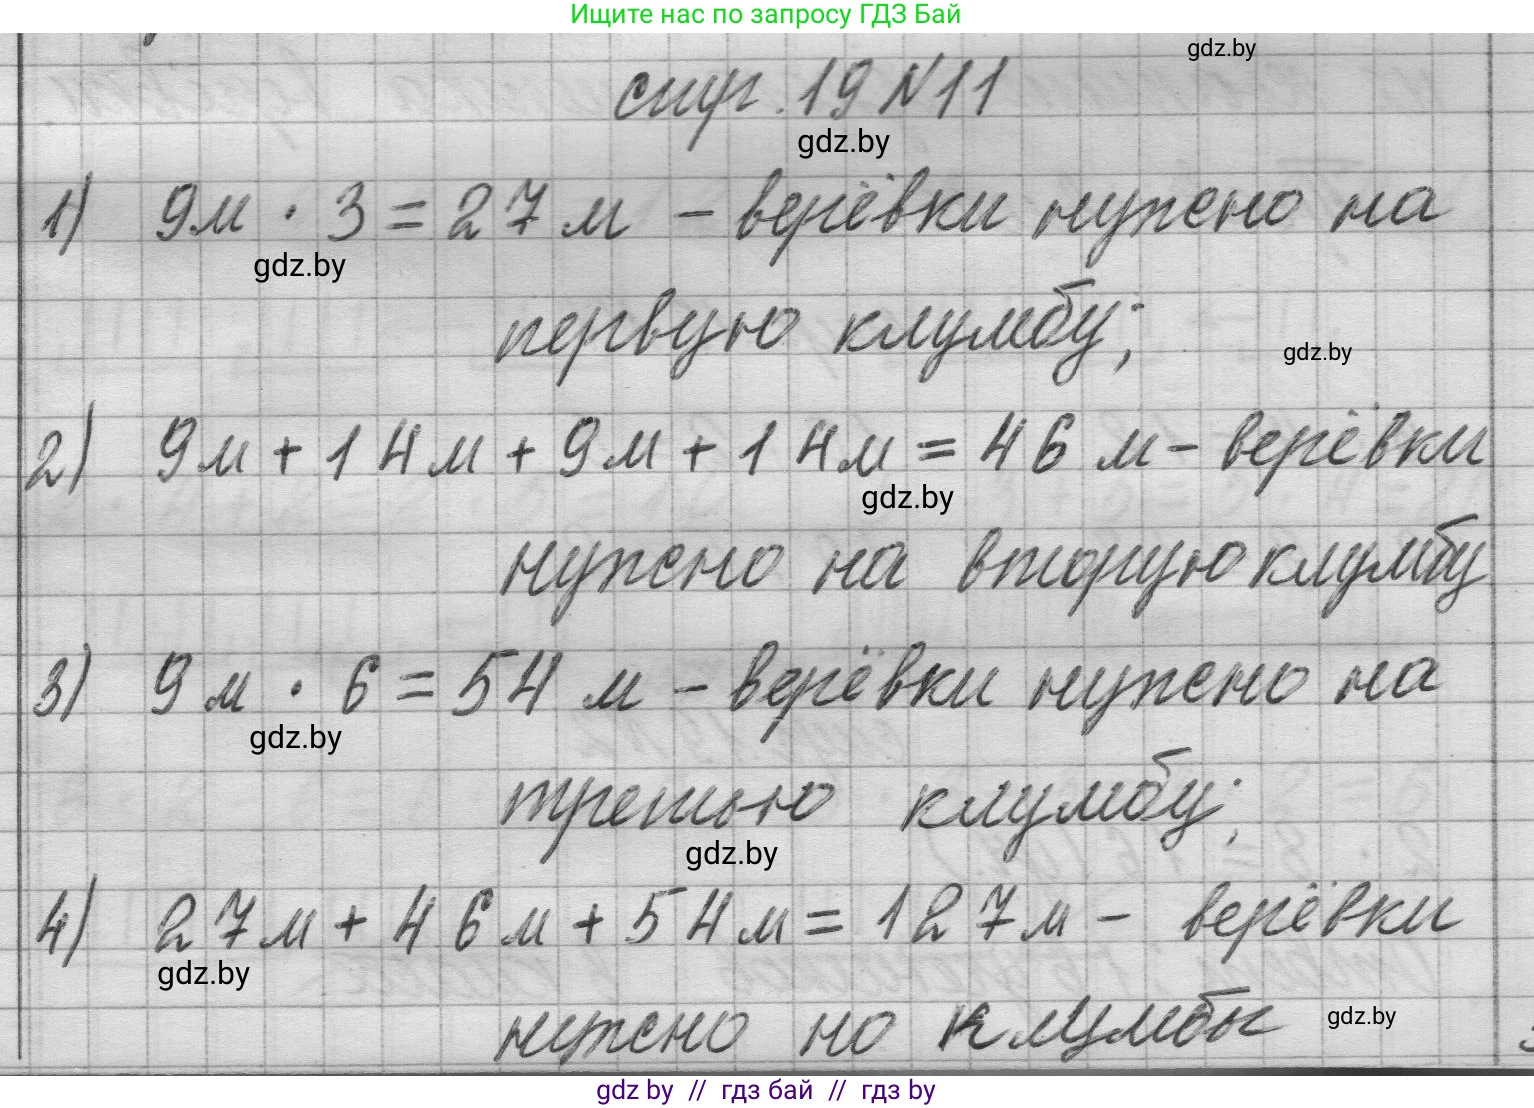 Ищите нас по запросу ГДЗ Бай
gdz.by
стр. 19 №11
gdz.by
1) 9м · 3 = 27 м - верёвки нужно на
gdz.by
первую клумбу;
gdz.by
2) 9м + 14м + 9м + 14м = 46 м - верёвки
gdz.by
нужно на вторую клумбу
3) 9м · 6 = 54 м - верёвки нужно на
gdz.by
третью клумбу;
gdz.by
4) 27м + 46м + 54м = 127м - верёвки
gdz.by
нужно но клумбы
gdz.by
gdz by // гдз бай // гдз by